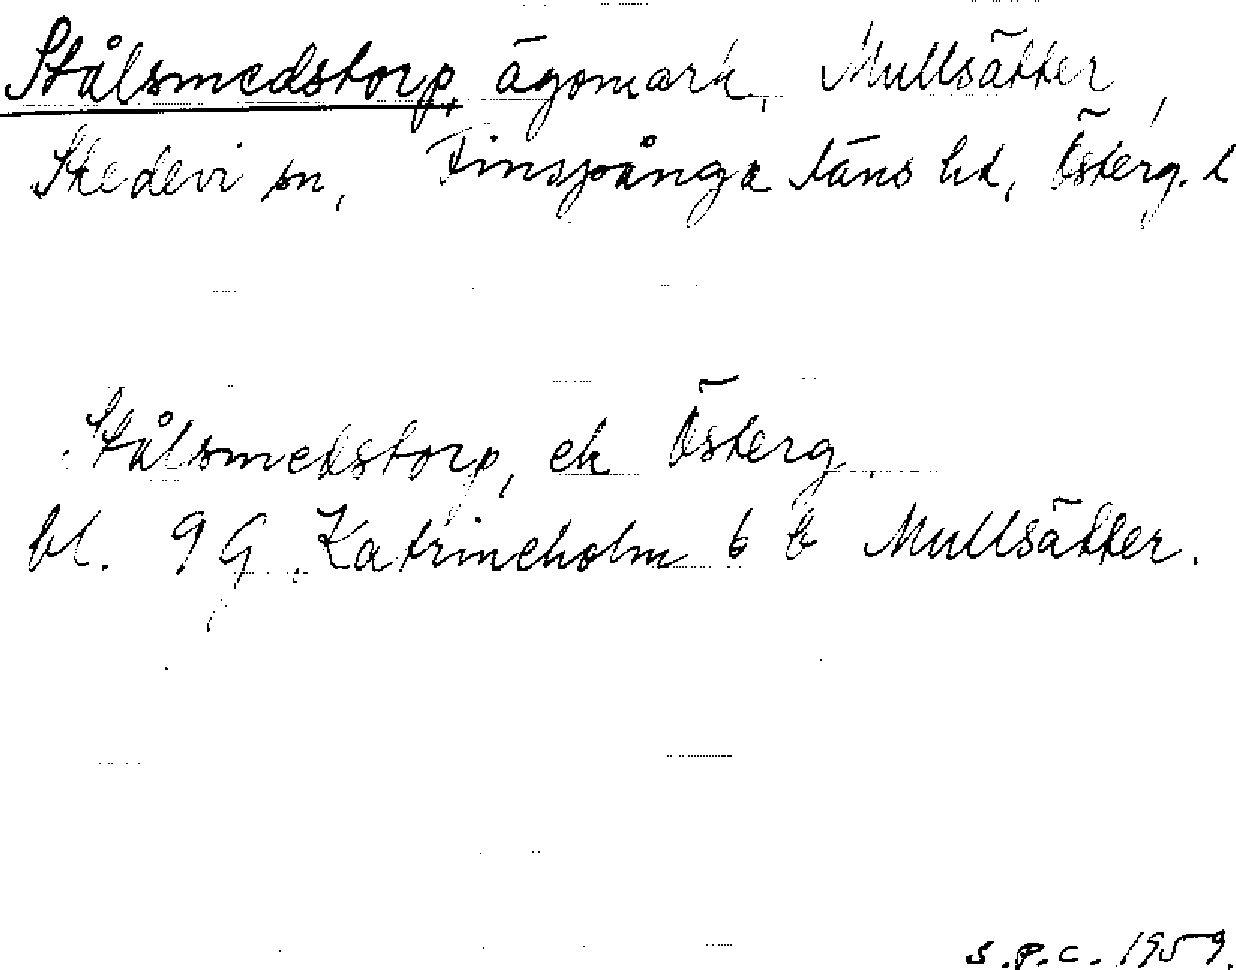 Stålsmedstorp, ägomark, Mullsätter,
Skedevi sn, Finspånga läns hd, Österg. l
Stålsmedstorp, ek Österg.
bl. 9G Katrineholm 6 b Mullsätter.
S.P.C. 1959.